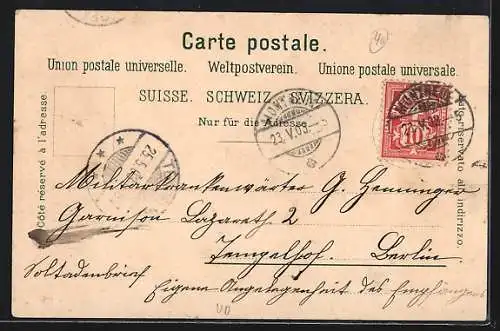 Carte postale.
Union postale universelle. Weltpostverein. Unione postale universale.
SUISSE. SCHWEIZ. SVIZZERA.
Nur für die Adresse.
Côté réservé à l'adresse.
Lato riservato all' indirizzo.
MONTREUX
23.V.03.
10
MONTREUX
25.5.
Militärkrankenwärter G. Henninger
Garnison Lazareth 2
Tempelhof. Berlin.
Soltadenbrief
Eigene Angelegenheit des Empfängers